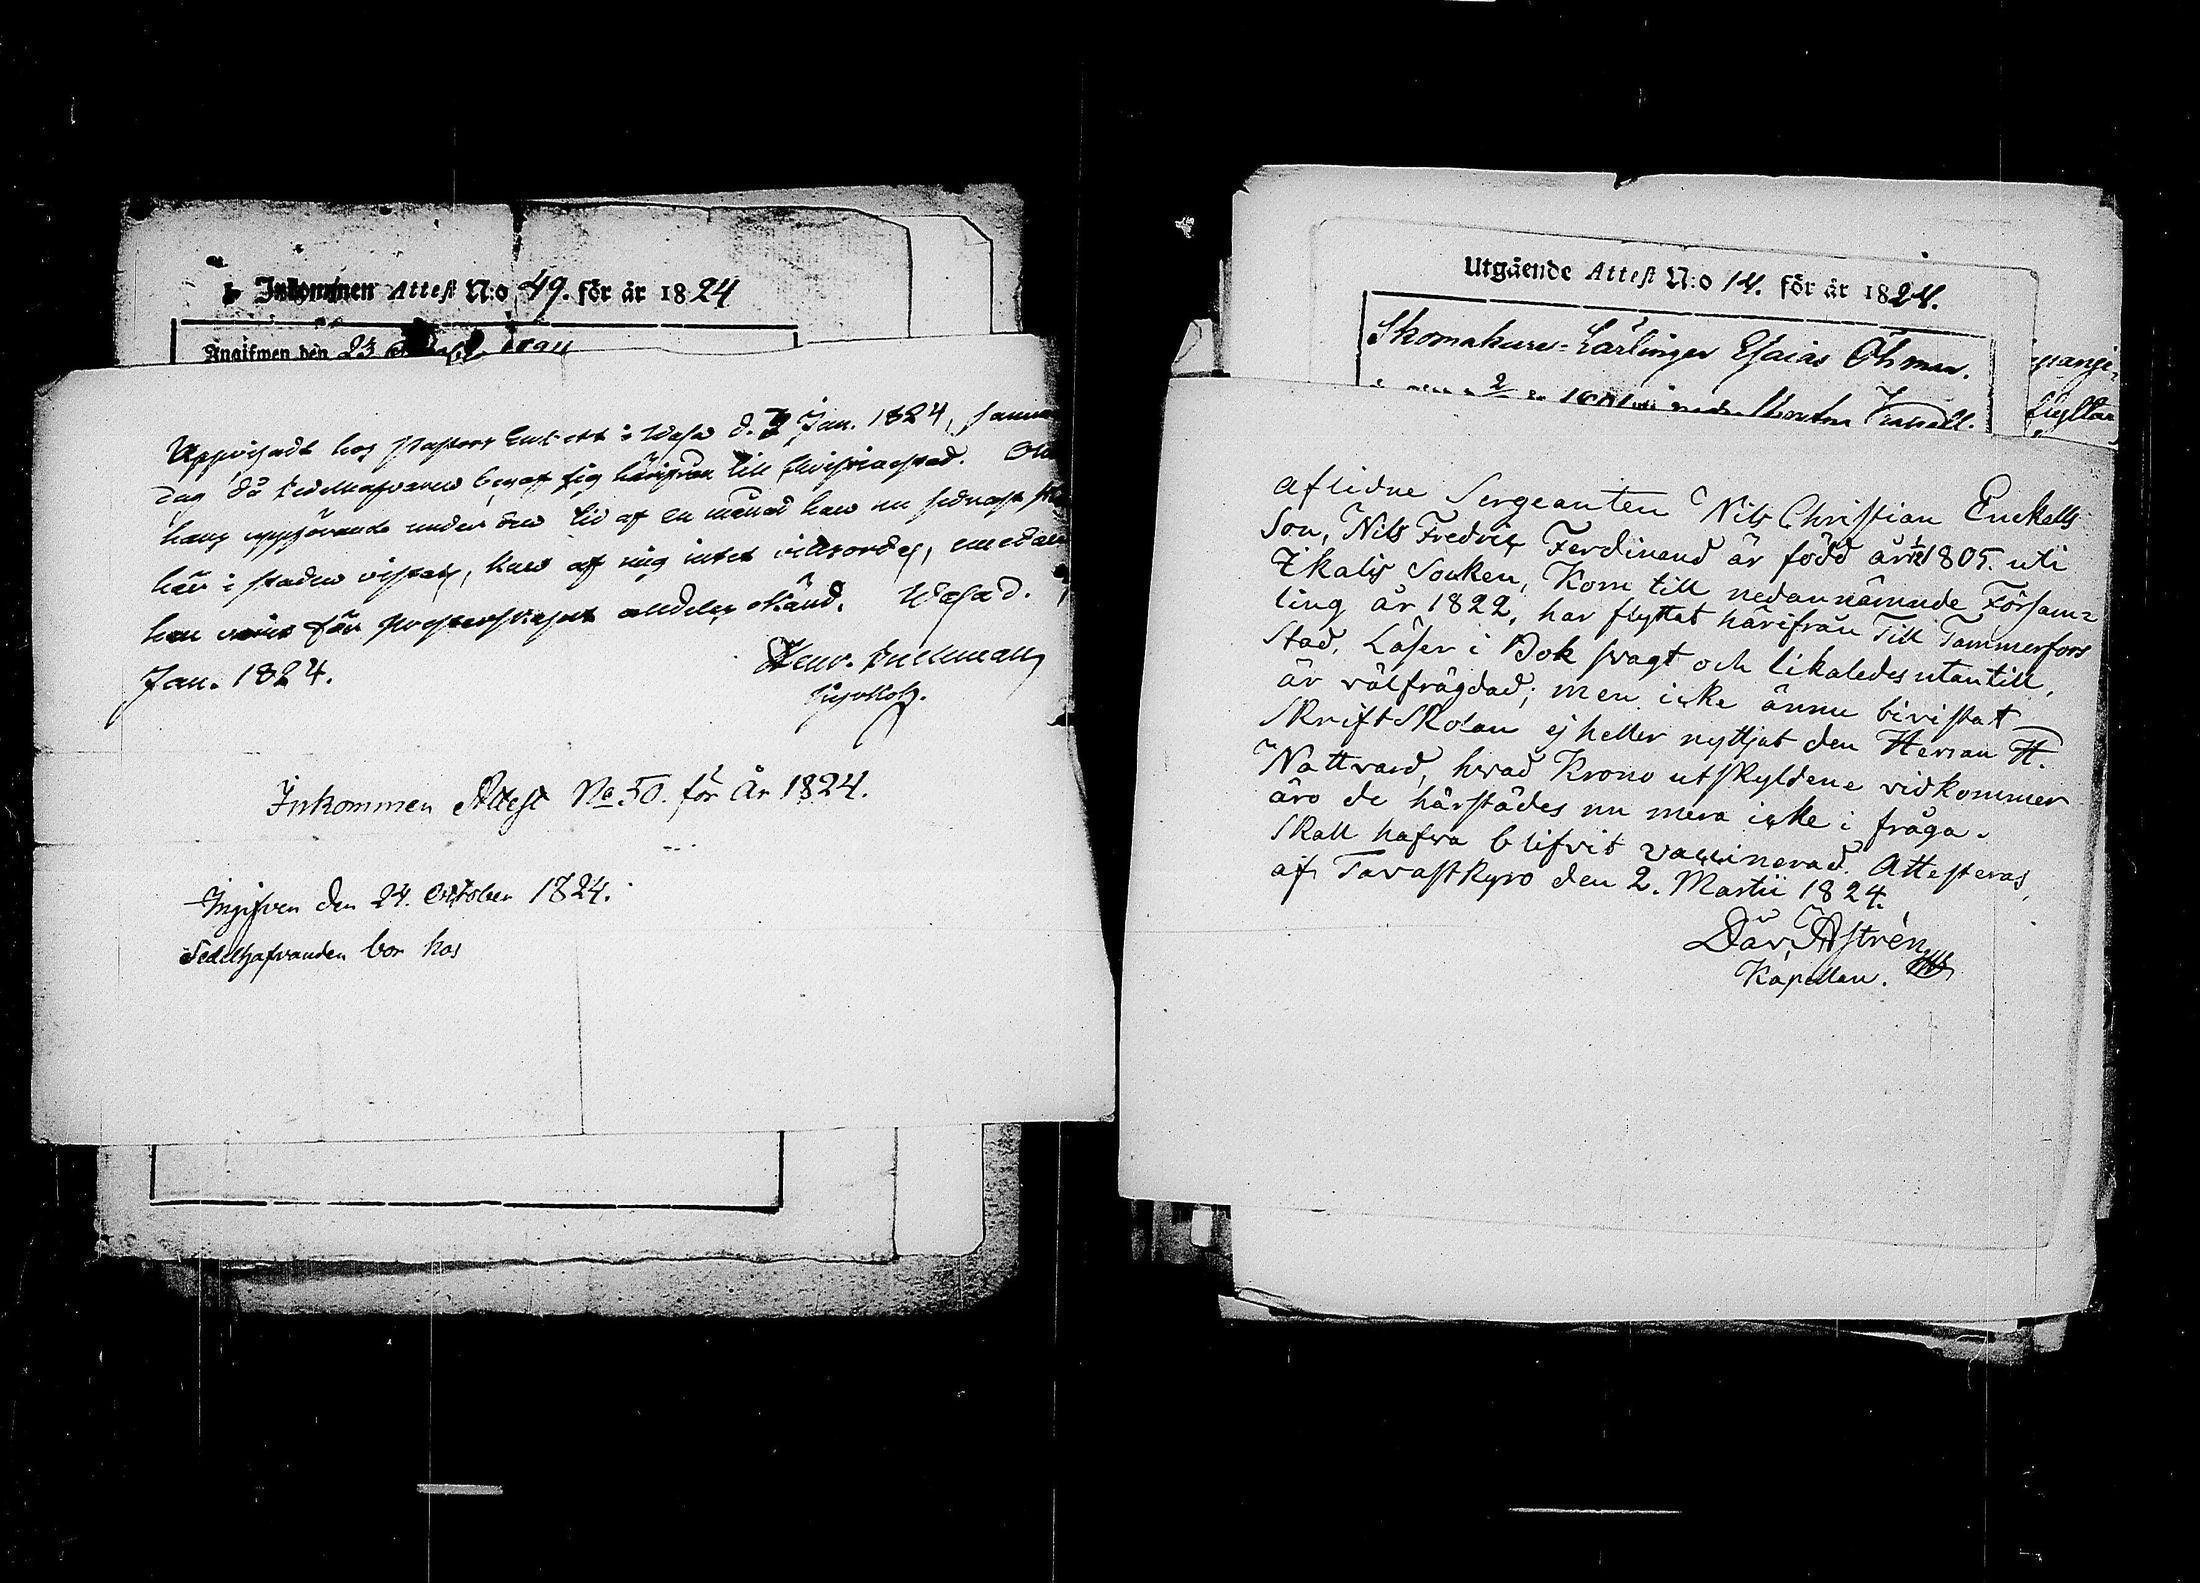 Inkommen Attest N:o 49. för år 1824
Angifwen den 23
Uppvisadt hos Pastors Embetet i Wasa d. 7 Jan. 1824, samma
dag då Sedelhafvaren begaf sig härifrån till Christinæstad. Om
hans uppförande under den tid af en månad han nu sednast
här i staden vistats, kan af mig intet vitsordas, emedan
han varit för Presterskapet alldeles okänd. Wasa d. 7
Jan. 1824.
Henr. Backman
Inkommen Attest No 50. för År 1824.
Ingifven den 24. October 1824.
Sedelhafvanden bor hos
Utgående Attest N:o 14. för år 1824.
Skomakare-Lärlingen Esaias Öhman.
flyttar
Aflidne Sergeanten Nils Christian Enckells
Son, Nils Fredric Ferdinand är född år 1805. uti
Ikalis Socken, Kom till nedannämnde Försam=
ling år 1822, har flyttat härifrån Till Tammerfors
Stad. Läser i Bok svagt och likaledes utantill,
är välfrägdad; men icke ännu bivistat
Skriftskolan ej heller nyttjat den Herran H.
Nattvard, hvad Krono utskyldene vidkommer
äro de härstädes nu mera icke i fråga.
Skall hafva blifvit vaccinerad. Attesteras,
af Tavastkyro den 2. Martii 1824.
Dav. Åstrén
Kapellan.